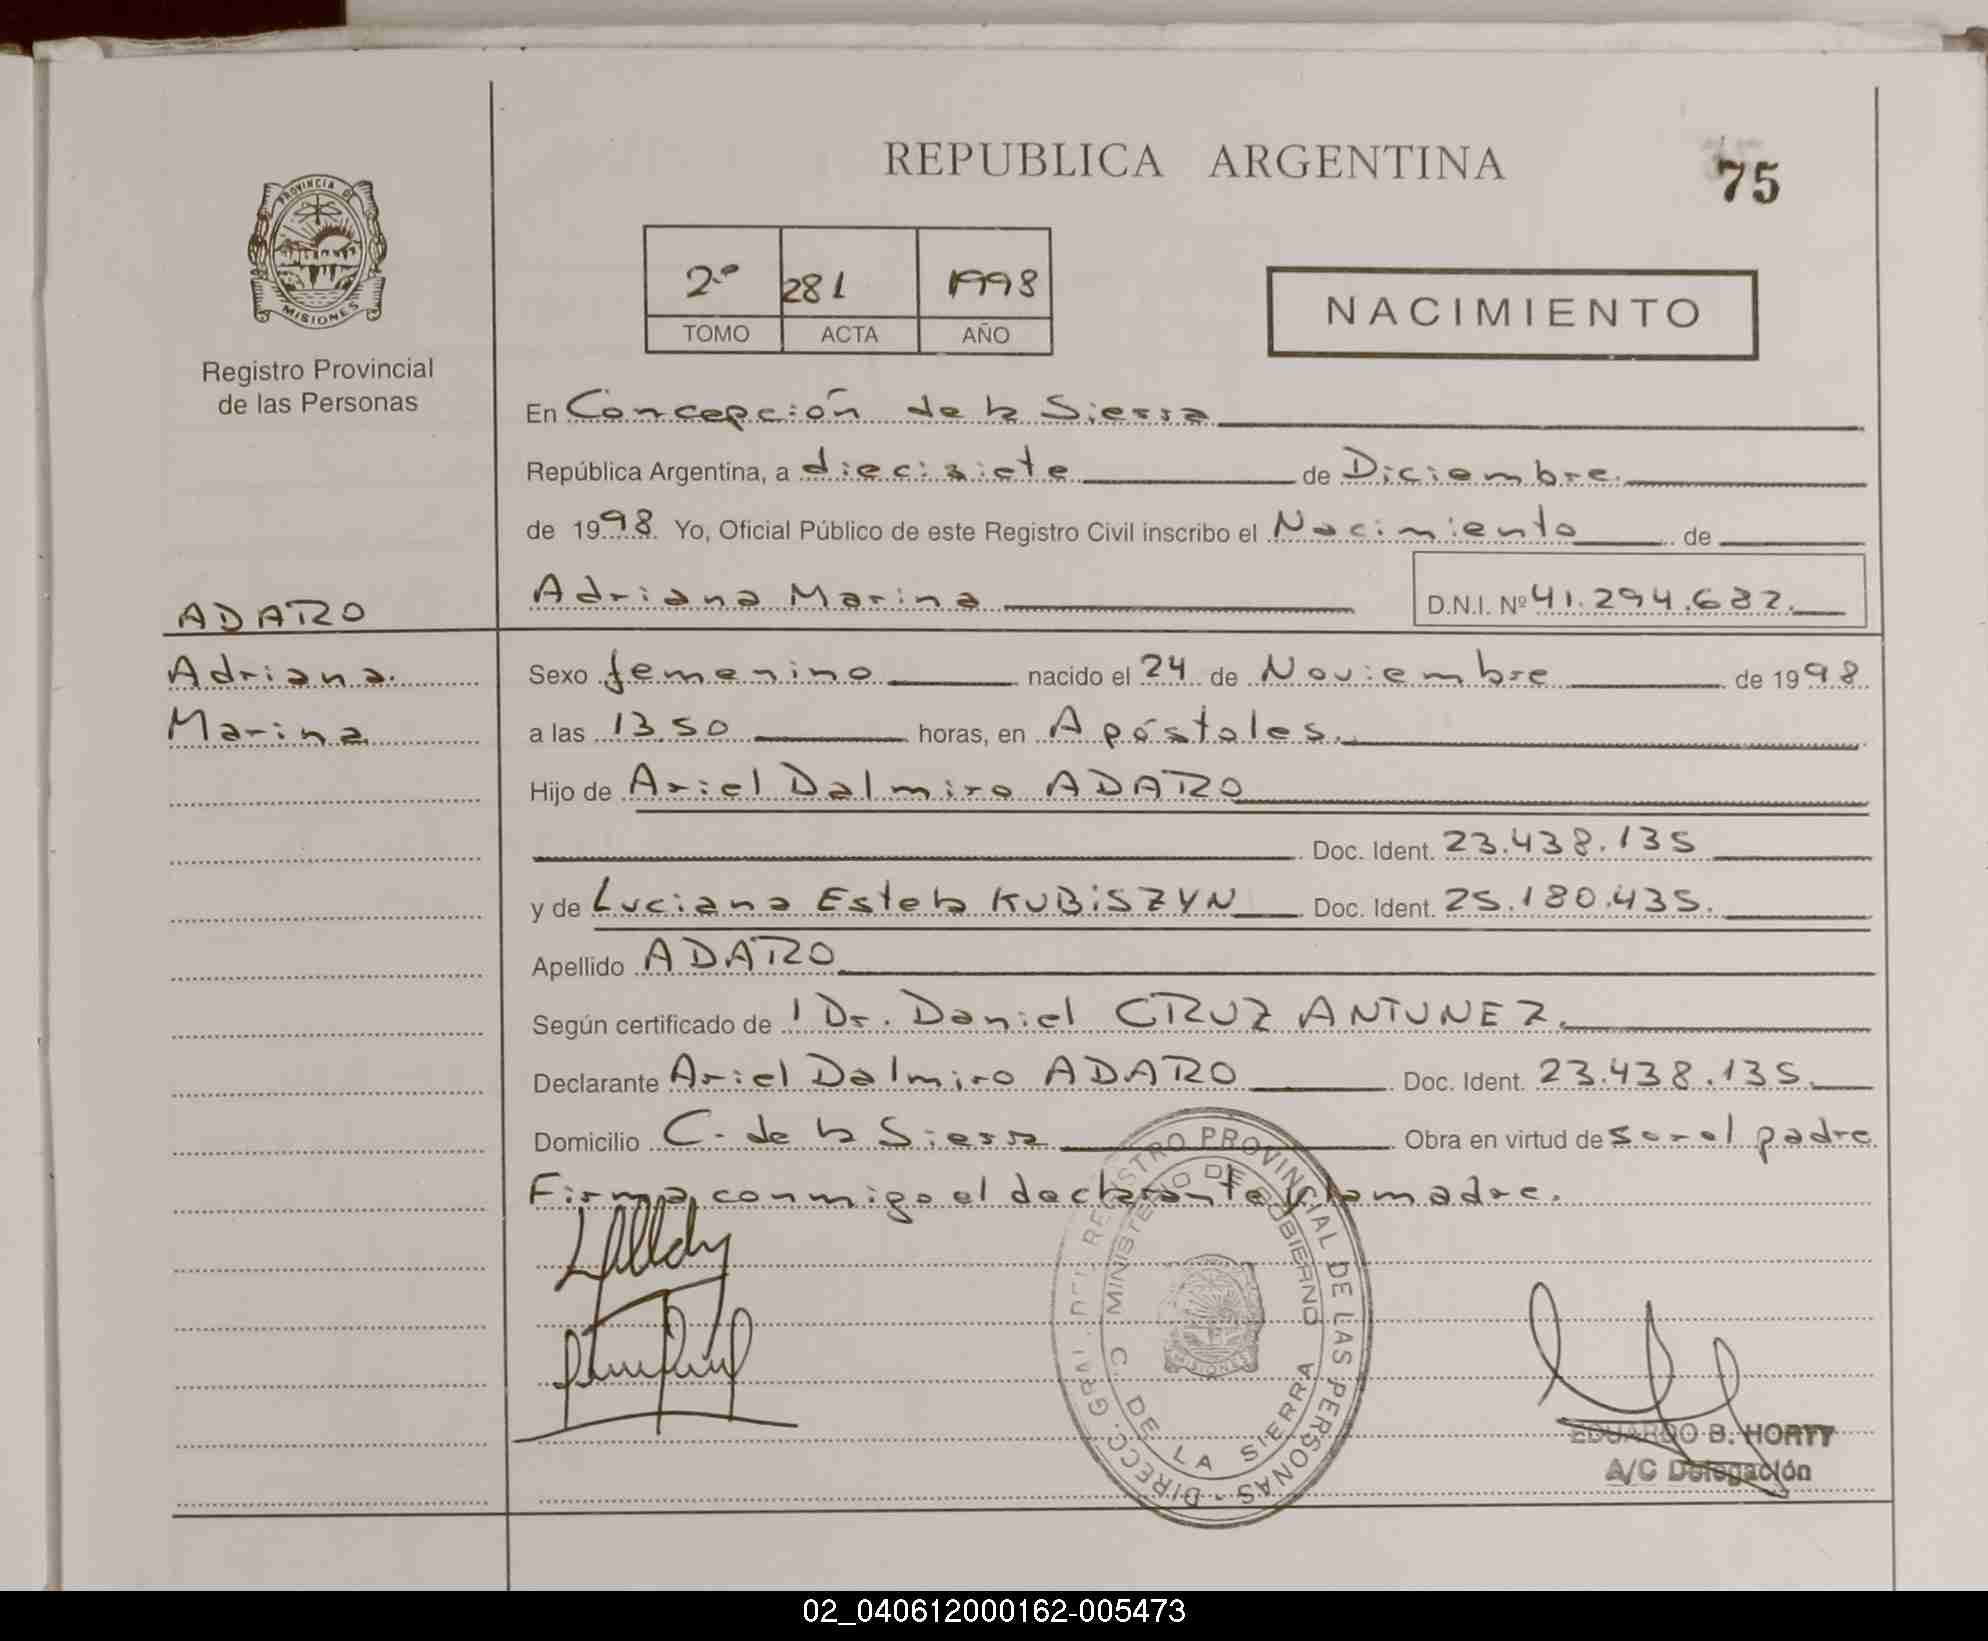 REPUBLICA ARGENTINA
75
PROVINCIA DE
MISIONES
Registro Provincial
de las Personas
2º 281 1998
TOMO ACTA AÑO
NACIMIENTO
En Concepción de la Sierra
República Argentina, a diecisiete de Diciembre.
de 1998. Yo, Oficial Público de este Registro Civil inscribo el Nacimiento de
ADARO
Adriana Marina D.N.I. Nº 41.294.682.
Adriana.
Marina
Sexo femenino nacido el 24 de Noviembre de 1998.
a las 13.50 horas, en Apóstoles.
Hijo de Ariel Dalmiro ADARO
Doc. Ident. 23.438.135
y de Luciana Estela KUBiSZYN Doc. Ident. 25.180.435.
Apellido ADARO
Según certificado de l Dr. Daniel CRUZ ANTUNEZ.
Declarante Ariel Dalmiro ADARO Doc. Ident. 23.438.135.
Domicilio C. de la Sierra Obra en virtud de ser el padre
Firma conmigo el declarante y la madre.
DIRECC. GRAL. DEL REGISTRO PROVINCIAL DE LAS PERSONAS -
MINISTERIO DE GOBIERNO
C. DE LA SIERRA
MISIONES
EDUARDO B. HORTT
A/C Delegación
02_040612000162-005473